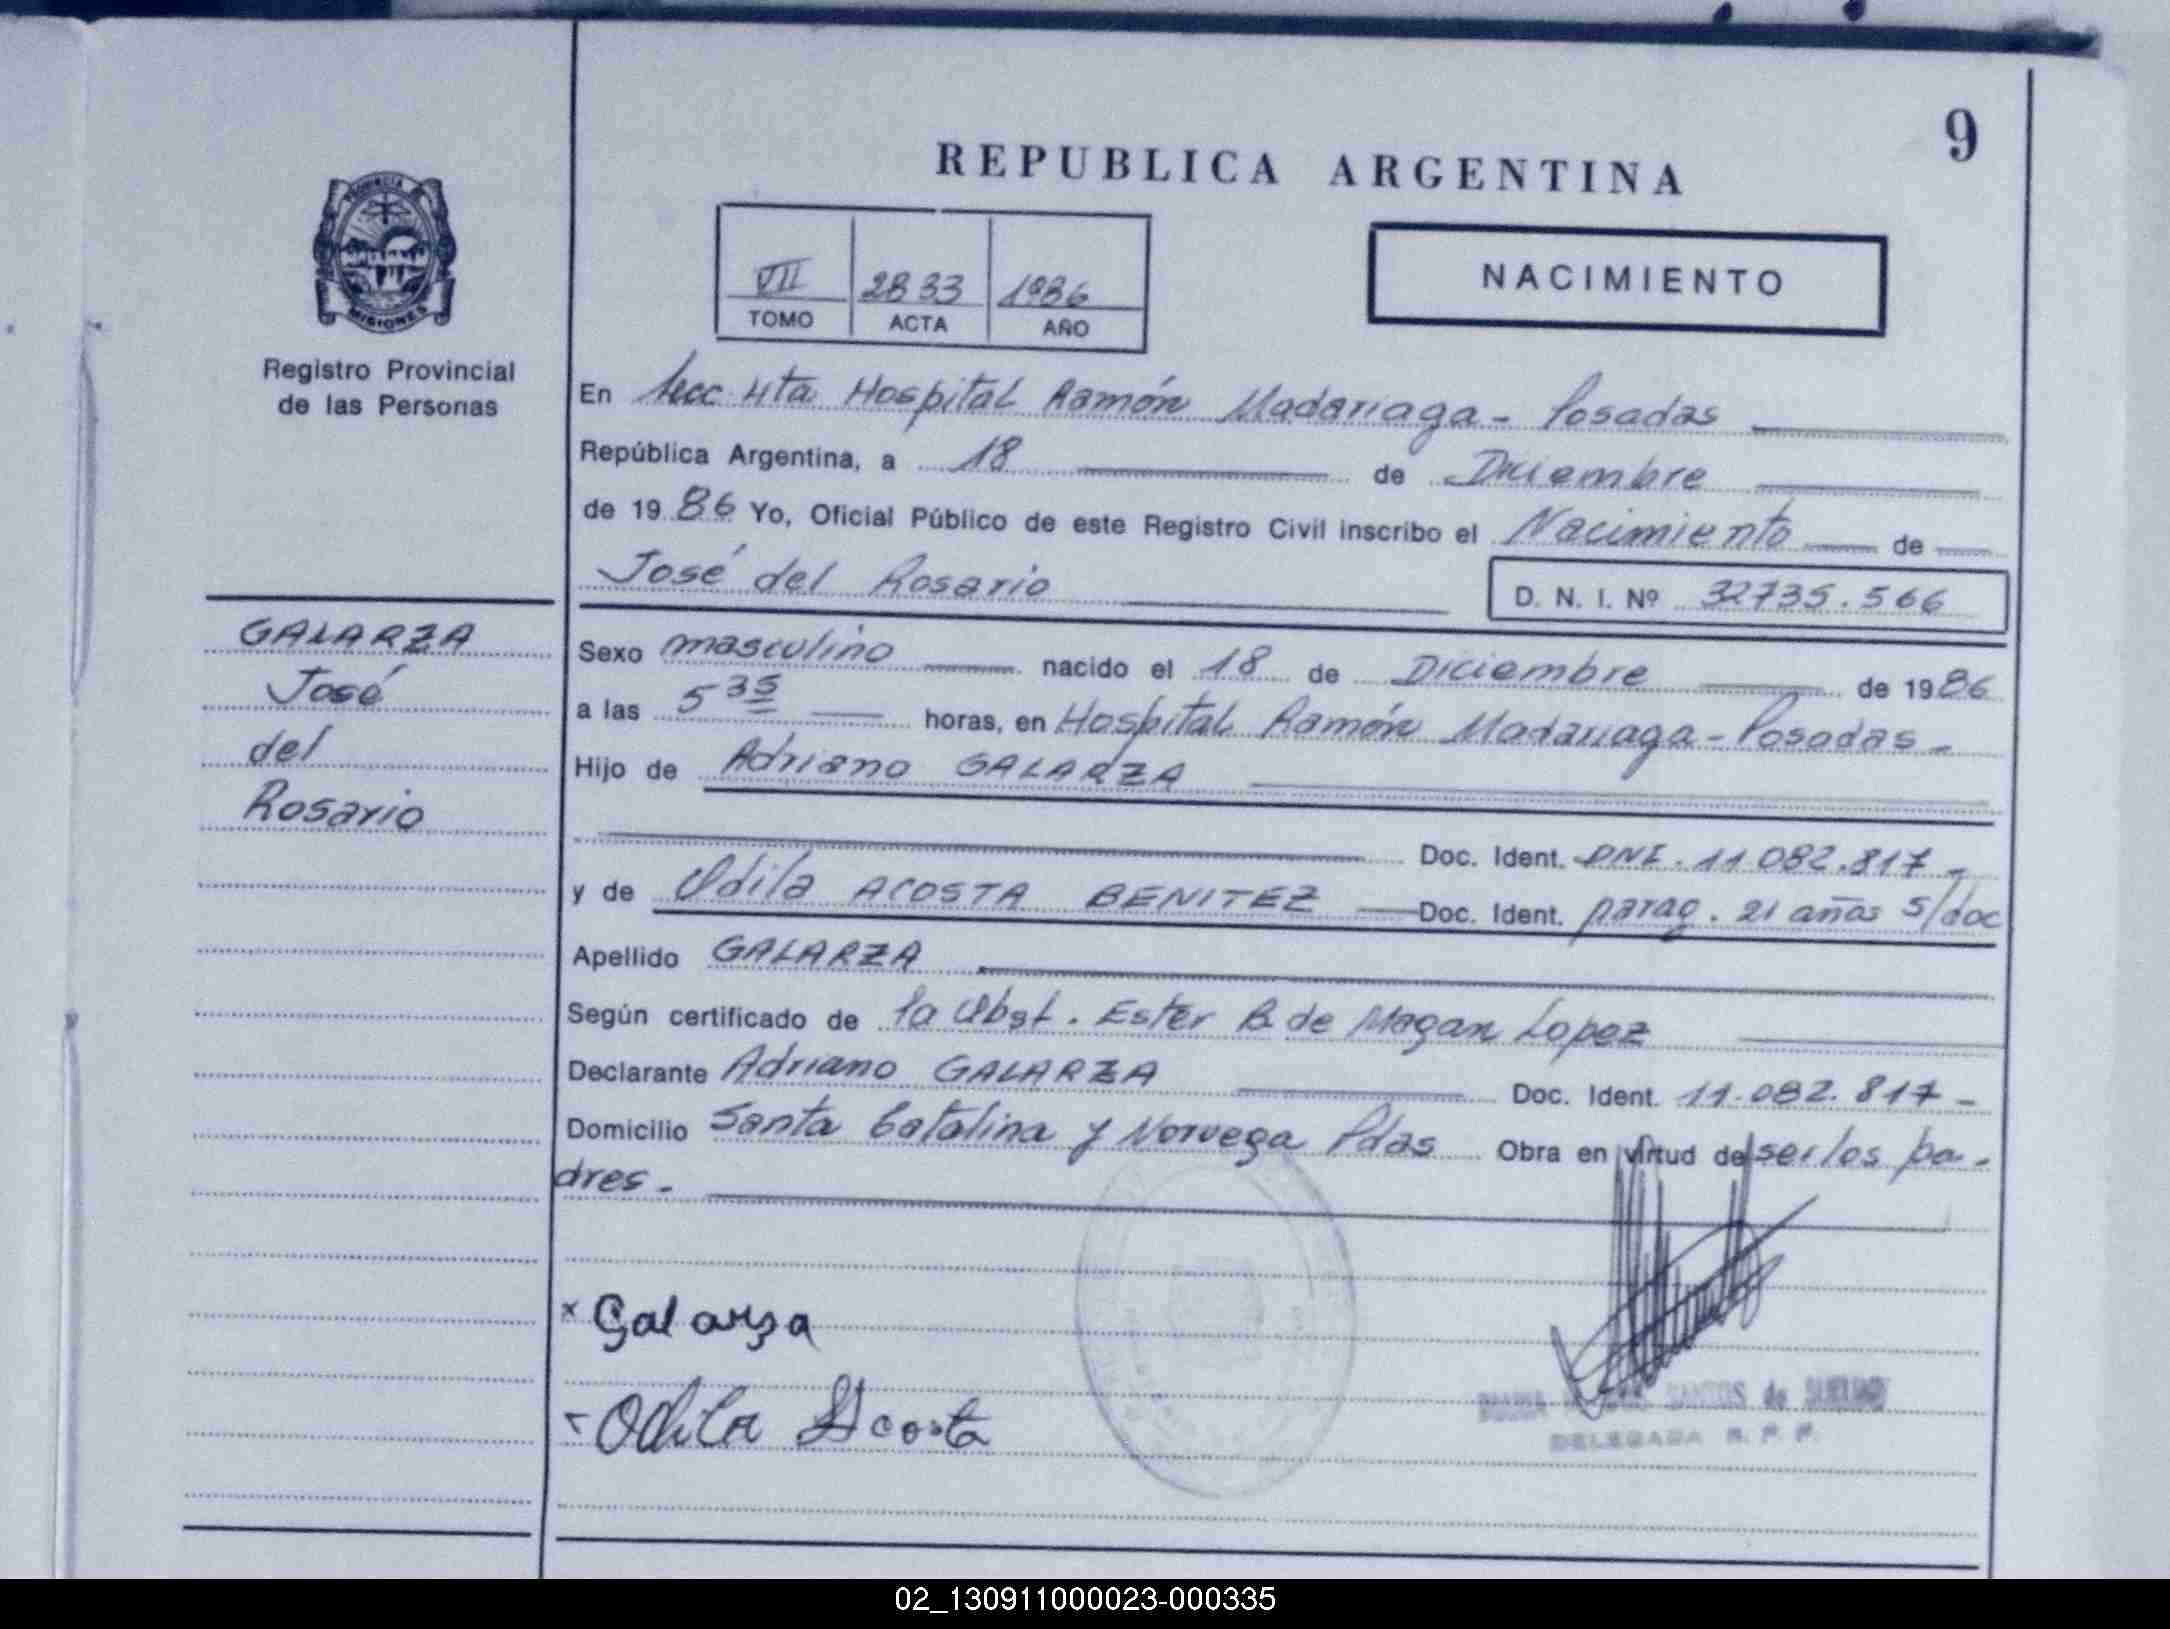 9
REPUBLICA ARGENTINA
PROVINCIA
MISIONES
VII 2833 1986
TOMO ACTA AÑO
NACIMIENTO
Registro Provincial
de las Personas
En Secc 4ta Hospital Ramón Madariaga - Posadas
República Argentina, a 18 de Diciembre
de 1986 Yo, Oficial Público de este Registro Civil inscribo el Nacimiento de
José del Rosario D. N. I. Nº 32735.566
GALARZA
José
del
Rosario
Sexo masculino nacido el 18 de Diciembre de 1986
a las 5 35 horas, en Hospital Ramón Madariaga - Posadas -
Hijo de Adriano GALARZA
Doc. Ident. DNI. 11.082.817 -
y de Odila ACOSTA BENITEZ Doc. Ident. parag. 21 años s/doc
Apellido GALARZA
Según certificado de la Obst. Ester B. de Magan Lopez
Declarante Adriano GALARZA Doc. Ident. 11.082.817 -
Domicilio Santa Catalina y Noruega Pdas Obra en virtud de ser los pa-
dres. -
x Galarza
Odila Acosta
SANTOS de
DELEGADA R. P. P.
02_130911000023-000335